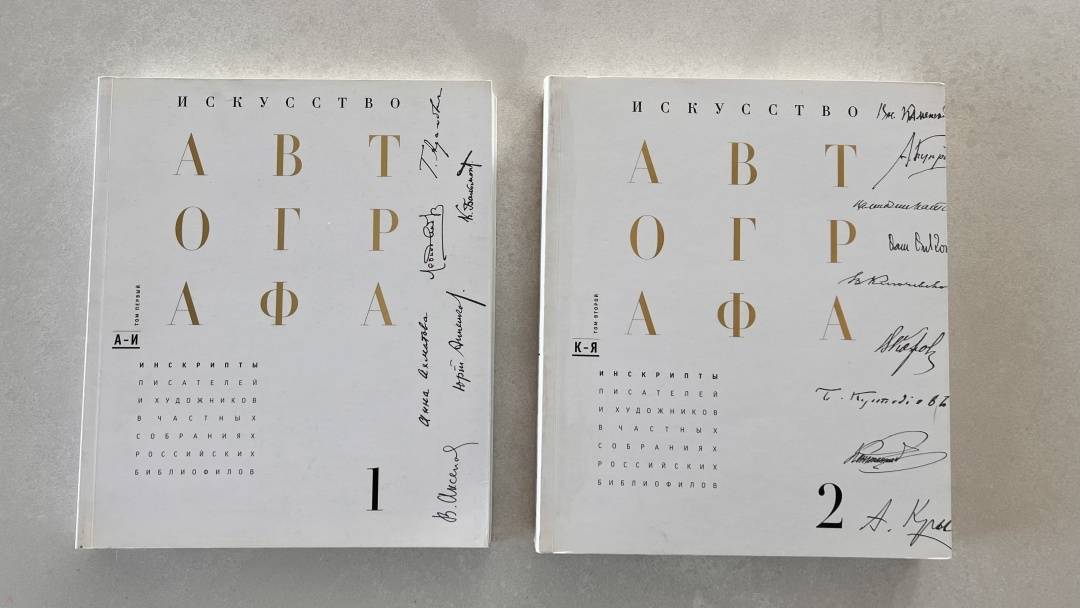 ИСКУССТВО
АВТ
ОГР
АФА
ТОМ ПЕРВЫЙ
А-И
ИНСКРИПТЫ
ПИСАТЕЛЕЙ
И ХУДОЖНИКОВ
В ЧАСТНЫХ
СОБРАНИЯХ
РОССИЙСКИХ
БИБЛИОФИЛОВ
1
К. Бальмонт
Анна Ахматова
Юрий Анненков.
В. Аксенов
ИСКУССТВО
АВТ
ОГР
АФА
ТОМ ВТОРОЙ
К-Я
ИНСКРИПТЫ
ПИСАТЕЛЕЙ
И ХУДОЖНИКОВ
В ЧАСТНЫХ
СОБРАНИЯХ
РОССИЙСКИХ
БИБЛИОФИЛОВ
2
Вас. Каменский
А. Купри
Б. Кустодіевъ
А. Кру